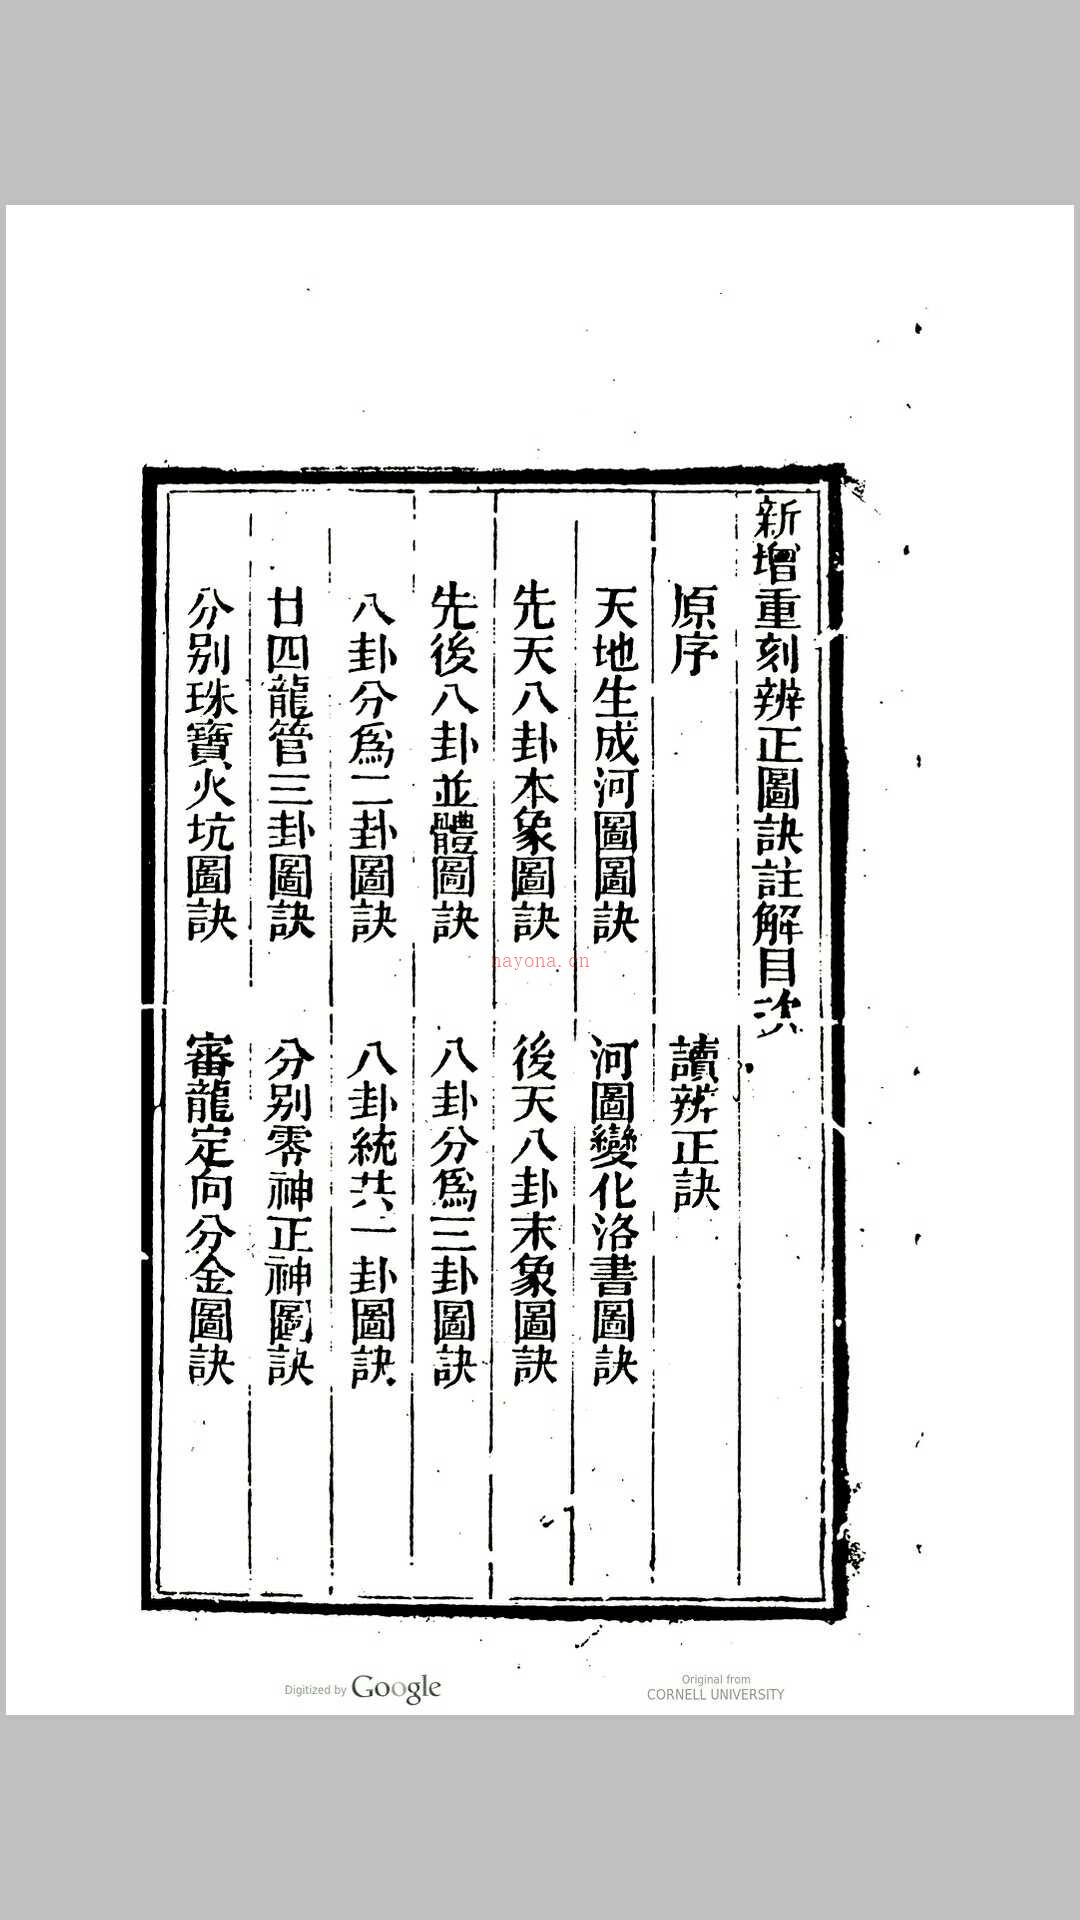 新增重刻辨正圖訣註解目次
原序　讀辨正訣
天地生成河圖圖訣　河圖變化洛書圖訣
先天八卦本象圖訣　後天八卦末象圖訣
先後八卦並體圖訣　八卦分爲三卦圖訣
八卦分爲二卦圖訣　八卦統共一卦圖訣
廿四龍管三卦圖訣　分别零神正神圖訣
分别珠寶火坑圖訣　審龍定向分金圖訣
nayona.cn
Digitized by Google
Original from
CORNELL UNIVERSITY